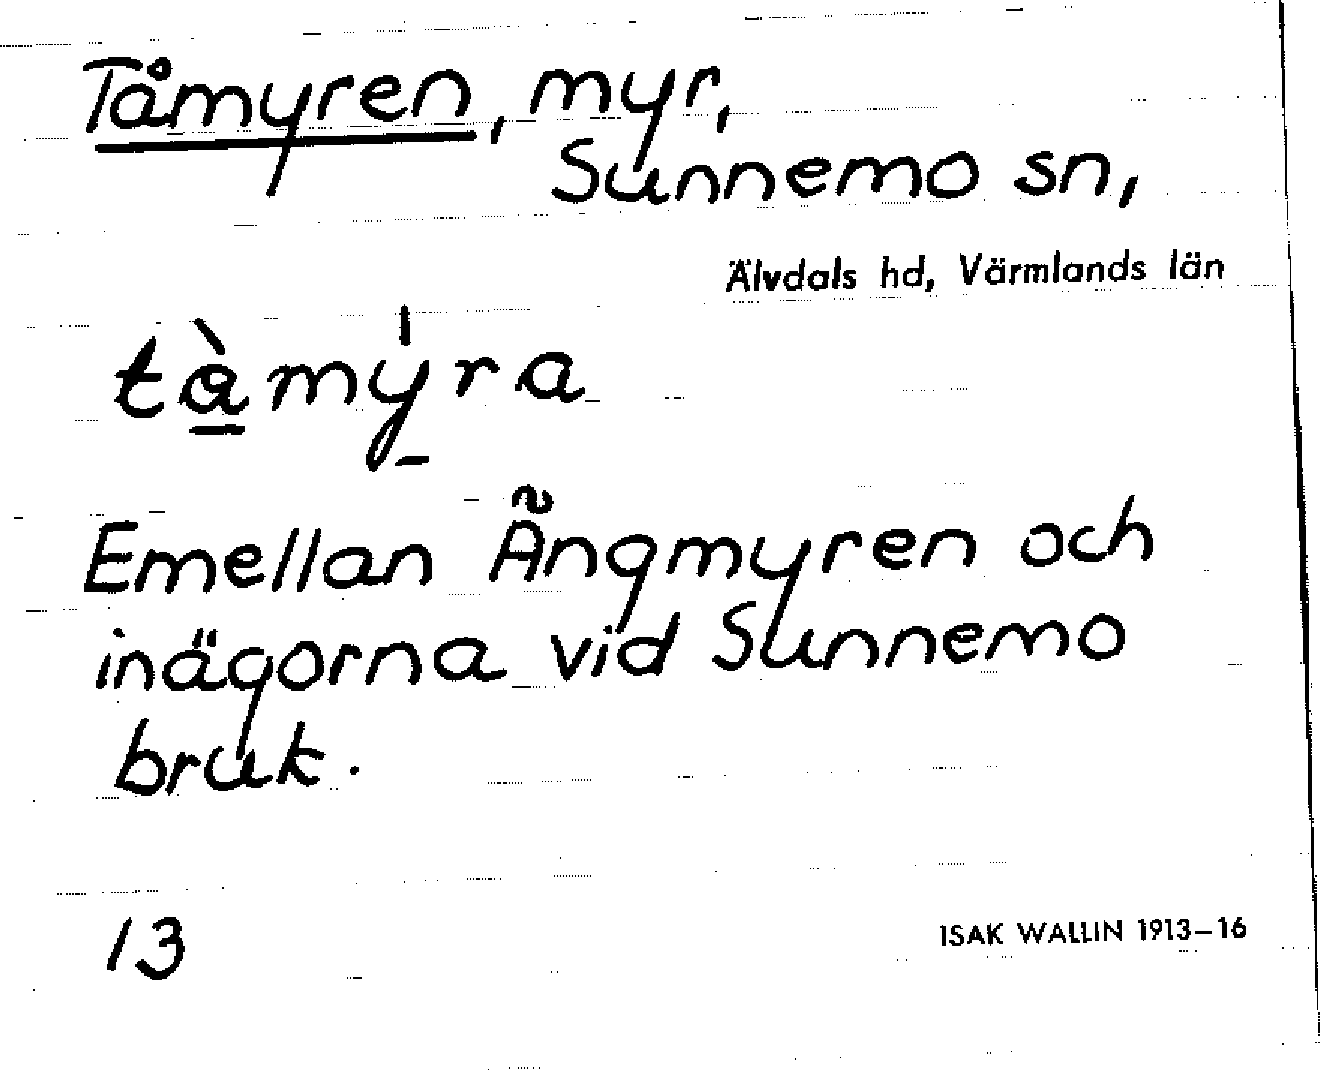 Tåmyren, myr,
Sunnemo sn,
Älvdals hd, Värmlands län
tàmýra
Emellan Ängmyren och
inägorna vid Sunnemo
bruk.
13
ISAK WALLIN 1913–16